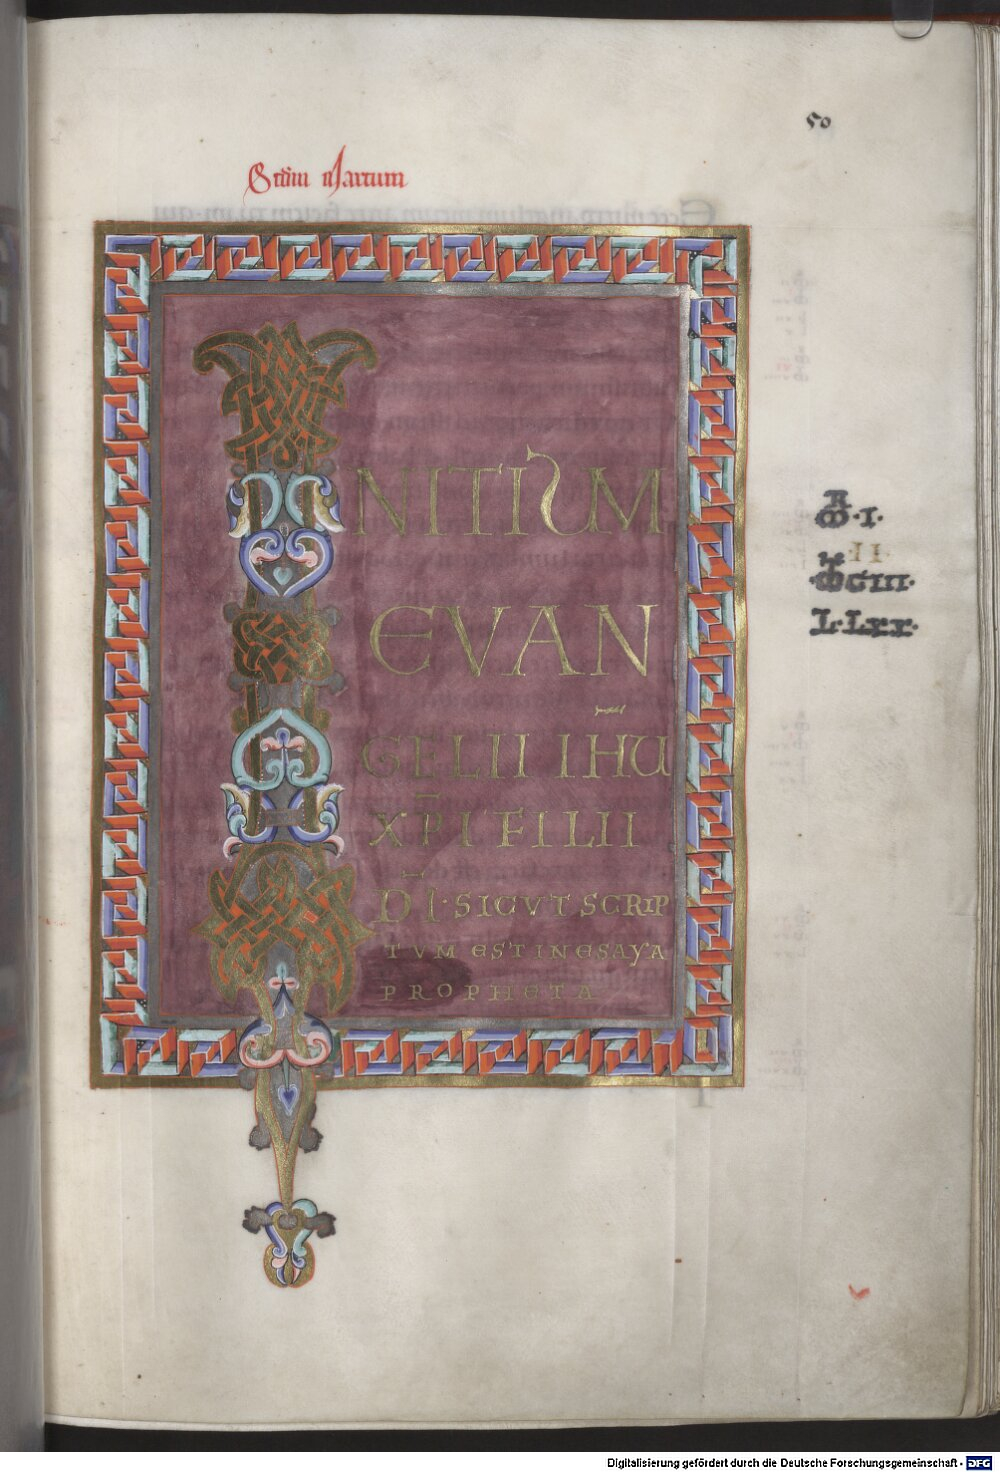 50
Scdm Marcum
INITIUM
EVAN
GELII IHU
XPI FILII
DI · SICVT SCRIP
TVM EST IN ESAYA
PROPHETA
· I ·
· II ·
CIII ·
L · LXX ·
Digitalisierung gefördert durch die Deutsche Forschungsgemeinschaft - DFG